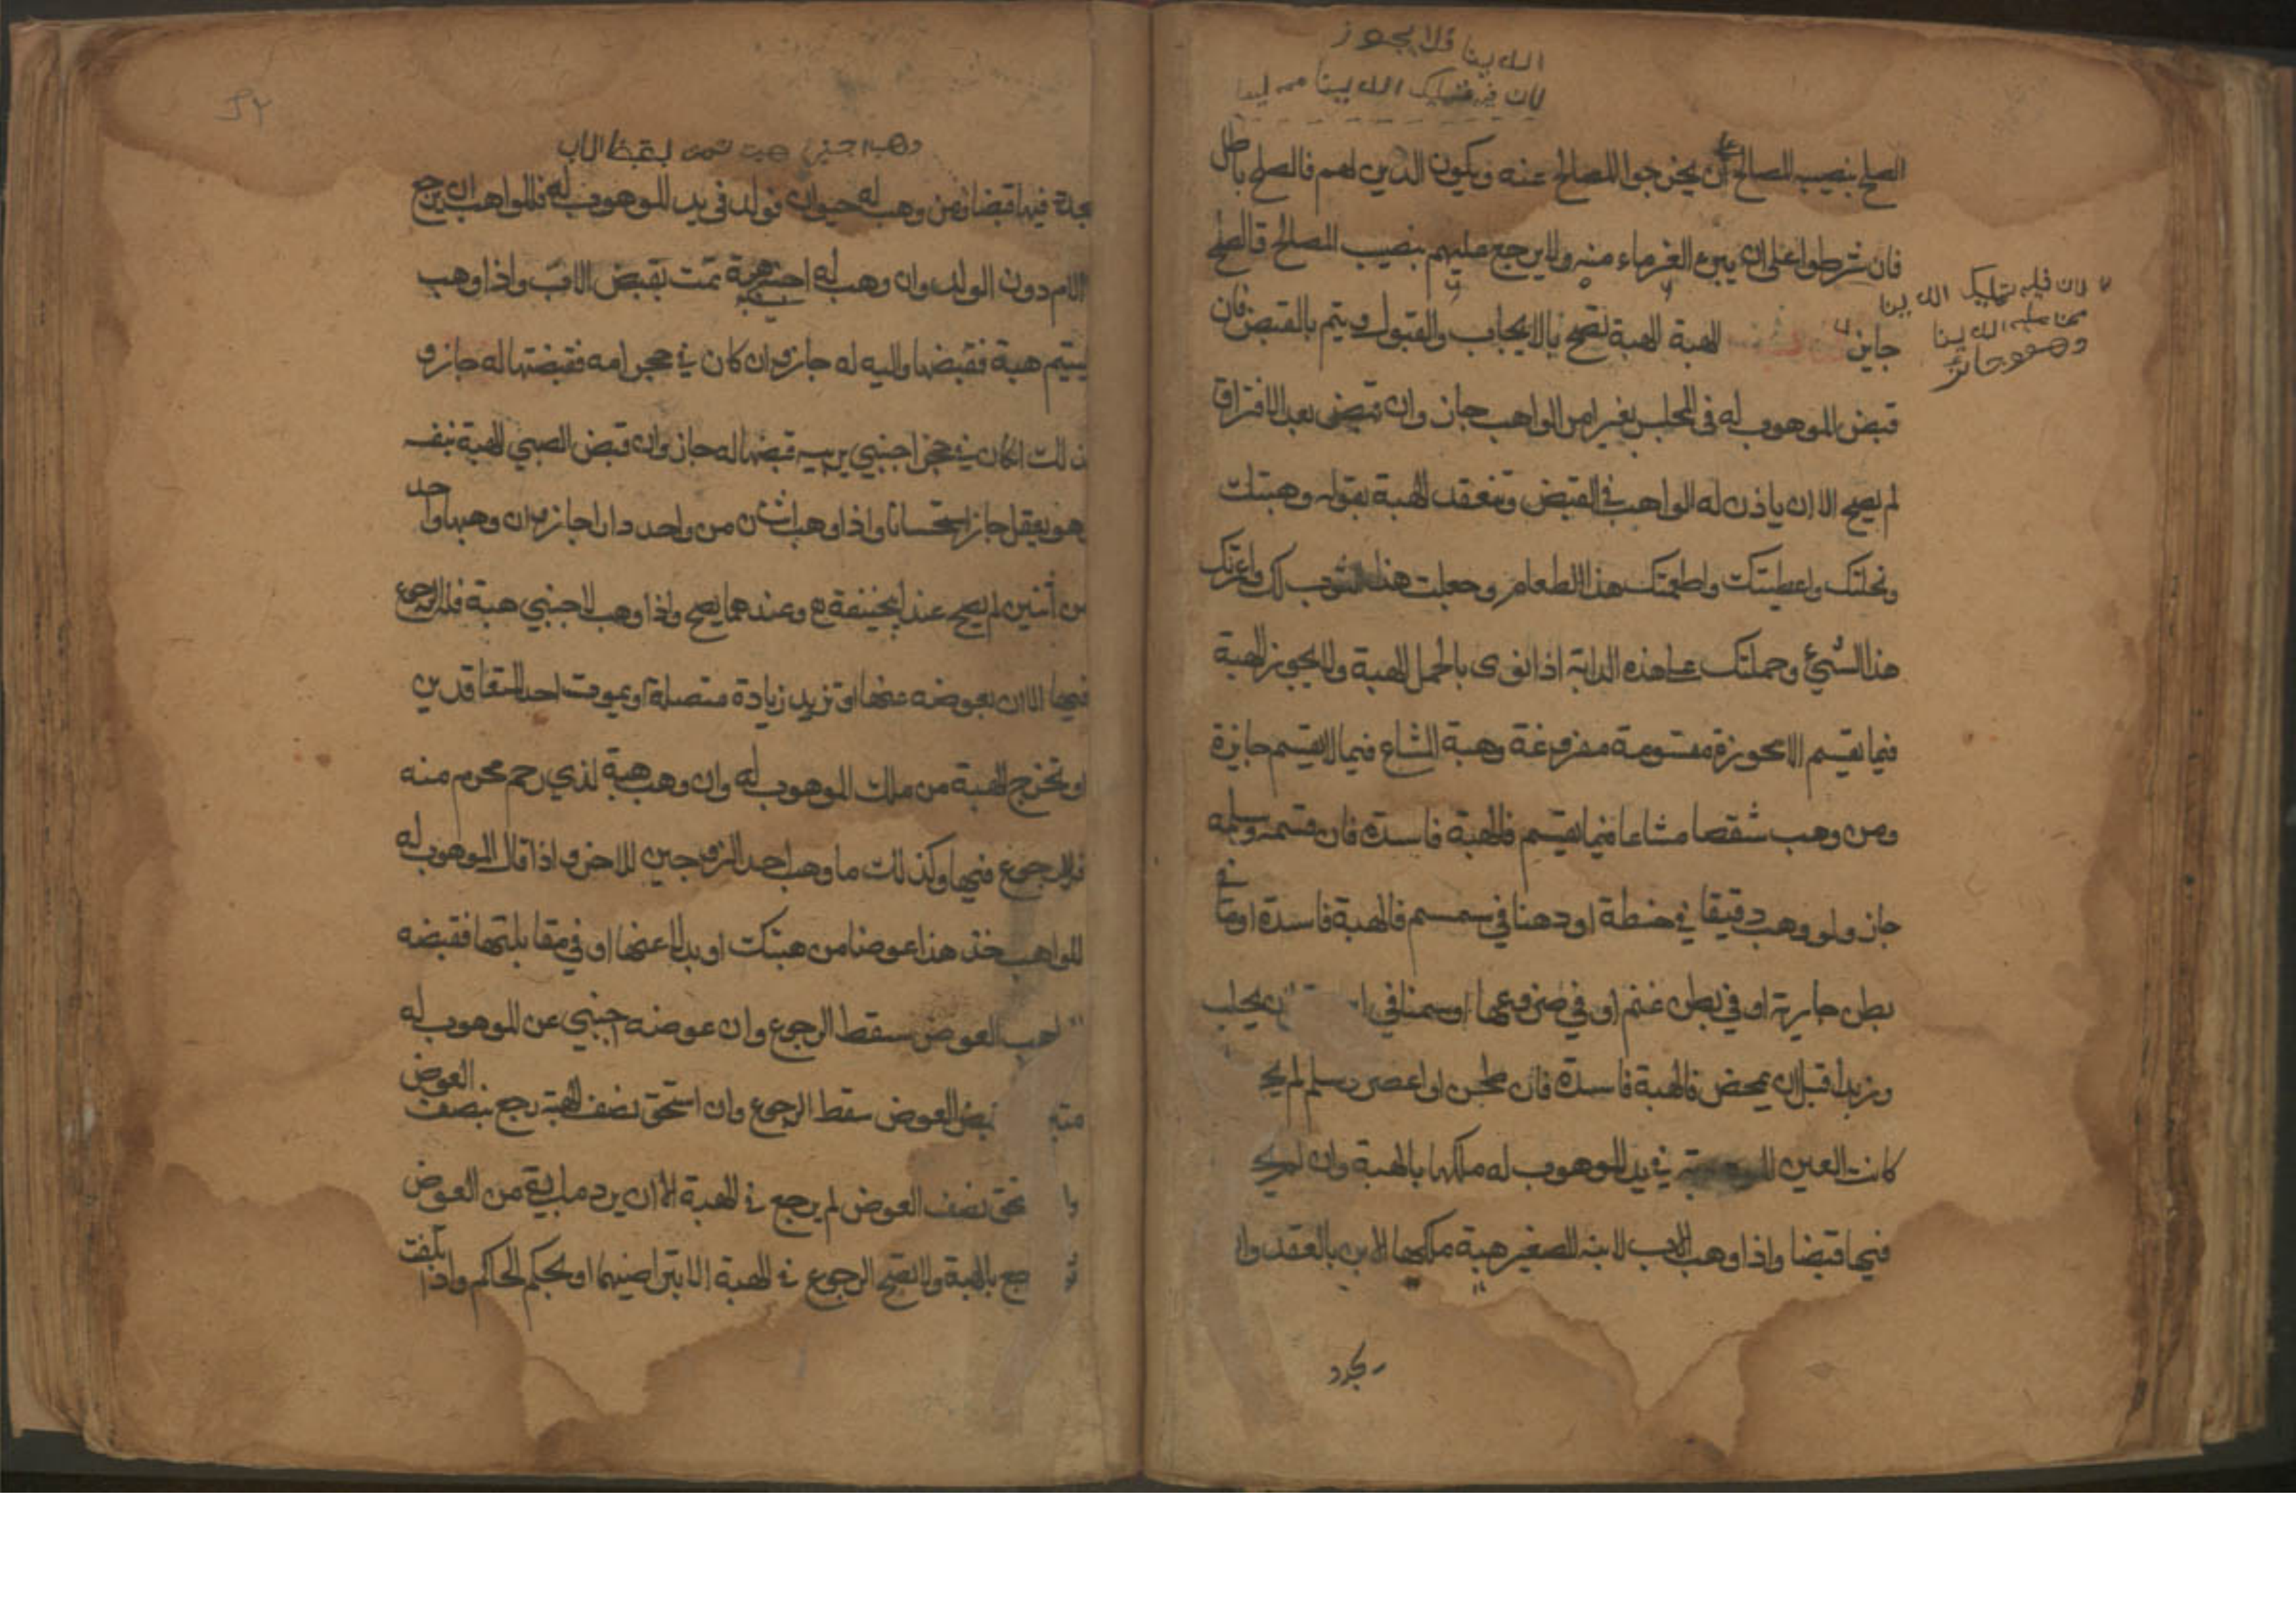 الدينا فلا يجوز
لان فيه تمليك الدينا
الصلح بنصيب المصالح على ان يخرجوا المصالح عنه ويكون الدين لهم فالصلح باطل
فان شرطوا على ان يبرء الغرماء منه ولا يرجع عليهم بنصيب المصالح فالصلح
جايز الهبة الهبة تصح بالايجاب والقبول ويتم بالقبض فان
قبض الموهوب له في المجلس بغير امر الواهب جاز وان قبض بعد الافتراق
لم يصح الا ان ياذن له الواهب في القبض وتنعقد الهبة بقوله وهبت
ونحلتك واعطيتك واطعمتك هذا الطعام وجعلت هذا الثوب لك واعمرتك
هذا الشيء وحملتك على هذه الدابة اذا نوى بالحمل الهبة ولا يجوز الهبة
فيما يقسم الا محوزة مقسومة مفروغة وهبة المشاع فيما لا يقسم جايزة
ومن وهب شقصا مشاعا فيما يقسم فالهبة فاسدة فان قسمه وسلمه
جاز ولو وهب دقيقا في حنطة او دهنا في سمسم فالهبة فاسدة او ما في
بطن جارية او في بطن غنم او في ضروعها او سمنا في يحلب
وزبدا قبل ان يمخض فالهبة فاسدة فان طحن او عصر وسلم لم يج
كانت العين في يد الموهوب له ملكها بالهبة وان لم يج
فيها قبضا واذا وهب الاب لابنه الصغير هبة ملكها الابن بالعقد وا
لان فيه تمليك الدينا
ممن عليه الدينا
وهو جائز
يجدد
وهب اجنبي هبت تمت بقبض الاب
يجدد فيها قبضا ومن وهب له حيوان فولد في يد الموهوب له فللواهب ان يرجع
الام دون الولد وان وهب له اجنبي هبة تمت بقبض الاب واذا وهب
ليتيم هبة فقبضها وليه له جاز وان كان في حجر امه فقبضتها له جاز و
ذلك ان كان في حجر اجنبي يربيه قبضها له جاز وان قبض الصبي الهبة بنفسه
وهو يعقل جاز استحسانا واذا وهب اثنان من واحد دارا جاز وان وهبها واحد
من اثنين لم يصح عند ابي حنيفة وعندهما يصح واذا وهب لاجنبي هبة فله الرجوع
فيها الا ان يعوضه عنها او تزيد زيادة متصلة او يموت احد المتعاقدين
او تخرج الهبة من ملك الموهوب له وان وهب هبة لذي رحم محرم منه
فلا رجوع فيها وكذلك ما وهب احد الزوجين للاخر واذا قال الموهوب له
للواهب خذ هذا عوضا من هبتك او بدلا عنها او في مقابلتها فقبضه
العوض سقط الرجوع وان عوضه اجنبي عن الموهوب له
العوض سقط الرجوع وان استحق نصف الهبة رجع بنصف العوض
نصف العوض لم يرجع في الهبة الا ان يرد ما بقي من العوض
بالهبة ولا تصح الرجوع في الهبة الا بتراضيهما او بحكم الحاكم واذا تلفت